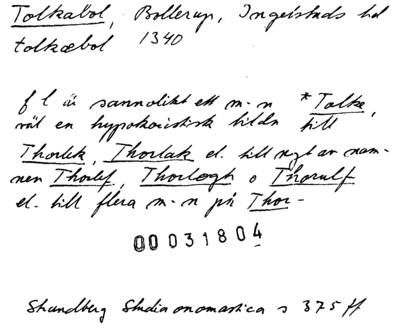 Tolkabol, Bollerup, Ingelstads hd
tolkæbol 1340
f l är sannolikt ett m-n *Tolke,
väl en hypokoristisk bildn till
Thorlek, Thorlak el. till ngt av nam-
nen Thorlef, Thorlogh o Thorulf
el. till flera m-n på Thor-
00031804
Strandberg Studia onomastica s 375 ff